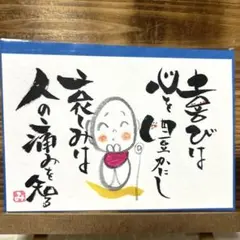 喜びは
心を豊かにし
哀しみは
人の痛みを知る